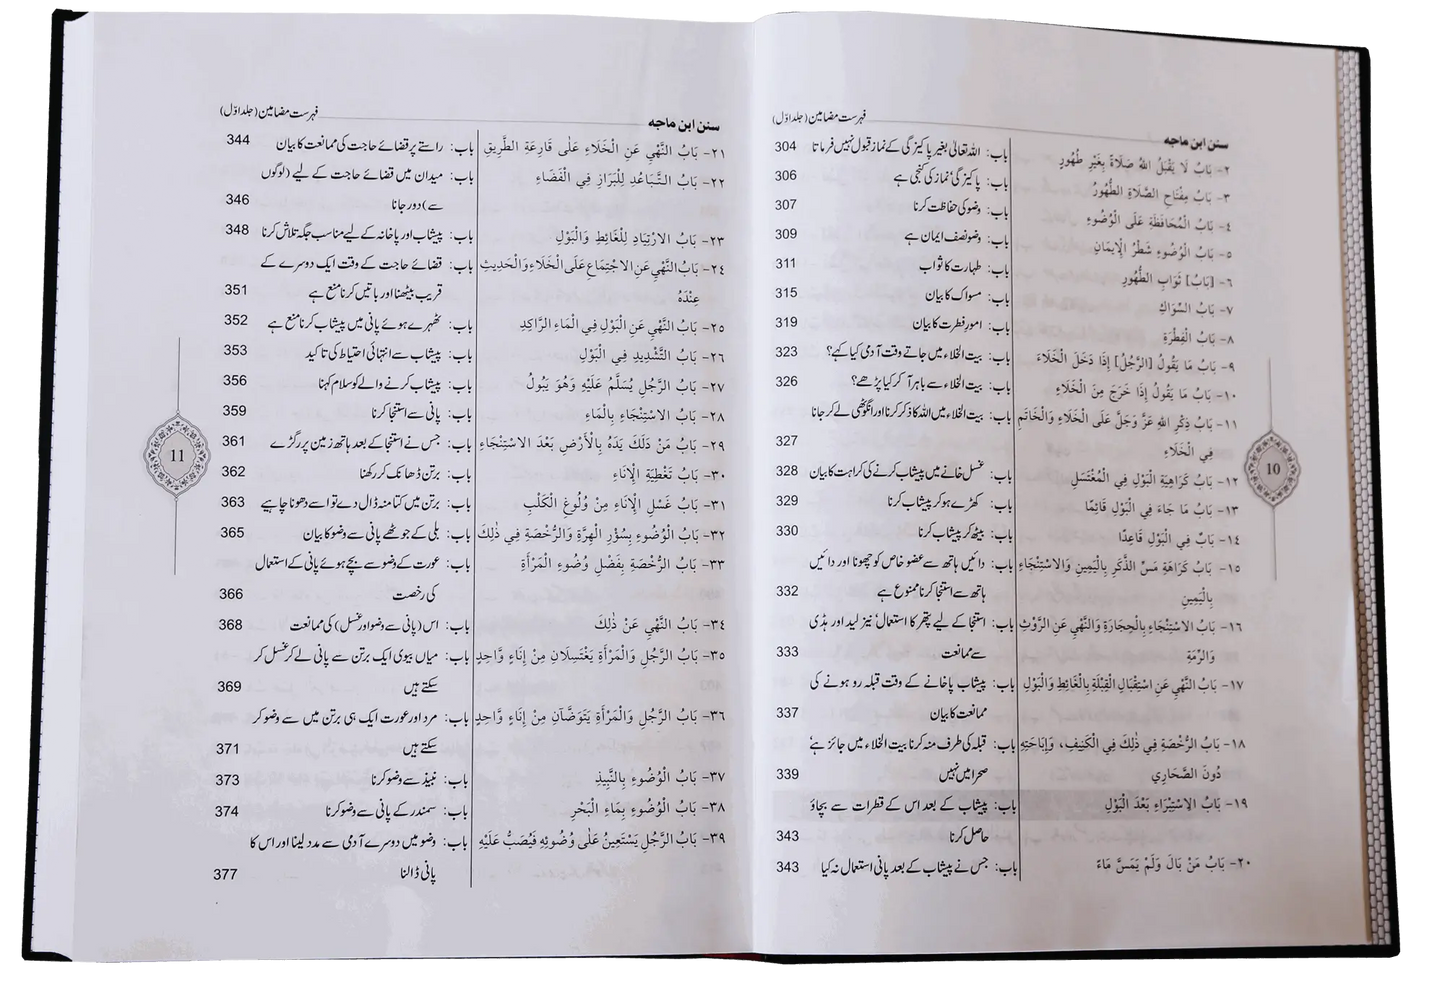 سنن ابن ماجه فہرست مضامین (جلد اوّل)
٢- بَابُ لَا يَقْبَلُ اللهُ صَلَاةً بِغَيْرِ طُهُورٍ باب: اللہ تعالیٰ بغیر پاکیزگی کے نماز قبول نہیں فرماتا 304
٣- بَابُ مِفْتَاحِ الصَّلَاةِ الطُّهُورُ باب: پاکیزگی نماز کی کنجی ہے 306
٤- بَابُ الْمُحَافَظَةِ عَلَى الْوُضُوءِ باب: وضو کی حفاظت کرنا 307
٥- بَابُ الْوُضُوءِ شَطْرُ الْإِيمَانِ باب: وضو نصف ایمان ہے 309
٦- [بَابُ] ثَوَابِ الطُّهُورِ باب: طہارت کا ثواب 311
٧- بَابُ السِّوَاكِ باب: مسواک کا بیان 315
٨- بَابُ الْفِطْرَةِ باب: امور فطرت کا بیان 319
٩- بَابُ مَا يَقُولُ [الرَّجُلُ] إِذَا دَخَلَ الْخَلَاءَ باب: بیت الخلاء میں جاتے وقت آدمی کیا کہے؟ 323
١٠- بَابُ مَا يَقُولُ إِذَا خَرَجَ مِنَ الْخَلَاءِ باب: بیت الخلاء سے باہر آ کر کیا پڑھے؟ 326
١١- بَابُ ذِكْرِ اللهِ عَزَّ وَجَلَّ عَلَى الْخَلَاءِ وَالْخَاتَمِ باب: بیت الخلاء میں اللہ کا ذکر کرنا اور انگوٹھی لے کر جانا
فِي الْخَلَاءِ 327
١٢- بَابُ كَرَاهِيَةِ الْبَوْلِ فِي الْمُغْتَسَلِ باب: غسل خانے میں پیشاب کرنے کی کراہت کا بیان 328
١٣- بَابُ مَا جَاءَ فِي الْبَوْلِ قَائِمًا باب: کھڑے ہو کر پیشاب کرنا 329
١٤- بَابٌ فِي الْبَوْلِ قَاعِدًا باب: بیٹھ کر پیشاب کرنا 330
١٥- بَابُ كَرَاهَةِ مَسِّ الذَّكَرِ بِالْيَمِينِ وَالِاسْتِنْجَاءِ باب: دائیں ہاتھ سے عضو خاص کو چھونا اور دائیں
بِالْيَمِينِ ہاتھ سے استنجا کرنا ممنوع ہے 332
١٦- بَابُ الِاسْتِنْجَاءِ بِالْحِجَارَةِ وَالنَّهْيِ عَنِ الرَّوْثِ باب: استنجا کے لیے پتھر کا استعمال نیز لید اور ہڈی
وَالرِّمَّةِ سے ممانعت 333
١٧- بَابُ النَّهْيِ عَنِ اسْتِقْبَالِ الْقِبْلَةِ بِالْغَائِطِ وَالْبَوْلِ باب: پیشاب پاخانے کے وقت قبلہ رو ہونے کی
ممانعت کا بیان 337
١٨- بَابُ الرُّخْصَةِ فِي ذٰلِكَ فِي الْكَنِيفِ، وَإِبَاحَتِهِ باب: قبلہ کی طرف منہ کرنا بیت الخلاء میں جائز ہے
دُونَ الصَّحَارِي صحرا میں نہیں 339
١٩- بَابُ الِاسْتِبْرَاءِ بَعْدَ الْبَوْلِ باب: پیشاب کے بعد اس کے قطرات سے بچاؤ
حاصل کرنا 343
٢٠- بَابُ مَنْ بَالَ وَلَمْ يَمَسَّ مَاءً باب: جس نے پیشاب کے بعد پانی استعمال نہ کیا 343
10
سنن ابن ماجه فہرست مضامین (جلد اوّل)
٢١- بَابُ النَّهْيِ عَنِ الْخَلَاءِ عَلٰى قَارِعَةِ الطَّرِيقِ باب: راستے پر قضائے حاجت کی ممانعت کا بیان 344
٢٢- بَابُ التَّبَاعُدِ لِلْبَرَازِ فِي الْفَضَاءِ باب: میدان میں قضائے حاجت کے لیے (لوگوں
سے) دور جانا 346
٢٣- بَابُ الِارْتِيَادِ لِلْغَائِطِ وَالْبَوْلِ باب: پیشاب اور پاخانہ کے لیے مناسب جگہ تلاش کرنا 348
٢٤- بَابُ النَّهْيِ عَنِ الِاجْتِمَاعِ عَلَى الْخَلَاءِ وَالْحَدِيثِ باب: قضائے حاجت کے وقت ایک دوسرے کے
عِنْدَهُ قریب بیٹھنا اور باتیں کرنا منع ہے 351
٢٥- بَابُ النَّهْيِ عَنِ الْبَوْلِ فِي الْمَاءِ الرَّاكِدِ باب: ٹھہرے ہوئے پانی میں پیشاب کرنا منع ہے 352
٢٦- بَابُ التَّشْدِيدِ فِي الْبَوْلِ باب: پیشاب سے انتہائی احتیاط کی تاکید 353
٢٧- بَابُ الرَّجُلِ يُسَلَّمُ عَلَيْهِ وَهُوَ يَبُولُ باب: پیشاب کرنے والے کو سلام کہنا 356
٢٨- بَابُ الِاسْتِنْجَاءِ بِالْمَاءِ باب: پانی سے استنجا کرنا 359
٢٩- بَابُ مَنْ دَلَكَ يَدَهُ بِالْأَرْضِ بَعْدَ الِاسْتِنْجَاءِ باب: جس نے استنجا کے بعد ہاتھ زمین پر رگڑے 361
٣٠- بَابُ تَغْطِيَةِ الْإِنَاءِ باب: برتن ڈھانک کر رکھنا 362
٣١- بَابُ غَسْلِ الْإِنَاءِ مِنْ وُلُوغِ الْكَلْبِ باب: برتن میں کتا منہ ڈال دے تو اسے دھونا چاہیے 363
٣٢- بَابُ الْوُضُوءِ بِسُؤْرِ الْهِرَّةِ وَالرُّخْصَةِ فِي ذٰلِكَ باب: بلی کے جوٹھے پانی سے وضو کا بیان 365
٣٣- بَابُ الرُّخْصَةِ بِفَضْلِ وُضُوءِ الْمَرْأَةِ باب: عورت کے وضو سے بچے ہوئے پانی کے استعمال
کی رخصت 366
٣٤- بَابُ النَّهْيِ عَنْ ذٰلِكَ باب: اس (پانی سے وضو اور غسل) کی ممانعت 368
٣٥- بَابُ الرَّجُلِ وَالْمَرْأَةِ يَغْتَسِلَانِ مِنْ إِنَاءٍ وَّاحِدٍ باب: میاں بیوی ایک برتن سے پانی لے کر غسل کر
سکتے ہیں 369
٣٦- بَابُ الرَّجُلِ وَالْمَرْأَةِ يَتَوَضَّآنِ مِنْ إِنَاءٍ وَّاحِدٍ باب: مرد اور عورت ایک ہی برتن میں سے وضو کر
سکتے ہیں 371
٣٧- بَابُ الْوُضُوءِ بِالنَّبِيذِ باب: نبیذ سے وضو کرنا 373
٣٨- بَابُ الْوُضُوءِ بِمَاءِ الْبَحْرِ باب: سمندر کے پانی سے وضو کرنا 374
٣٩- بَابُ الرَّجُلِ يَسْتَعِينُ عَلٰى وُضُوئِهِ فَيُصَبُّ عَلَيْهِ باب: وضو میں دوسرے آدمی سے مدد لینا اور اس کا
پانی ڈالنا 377
11